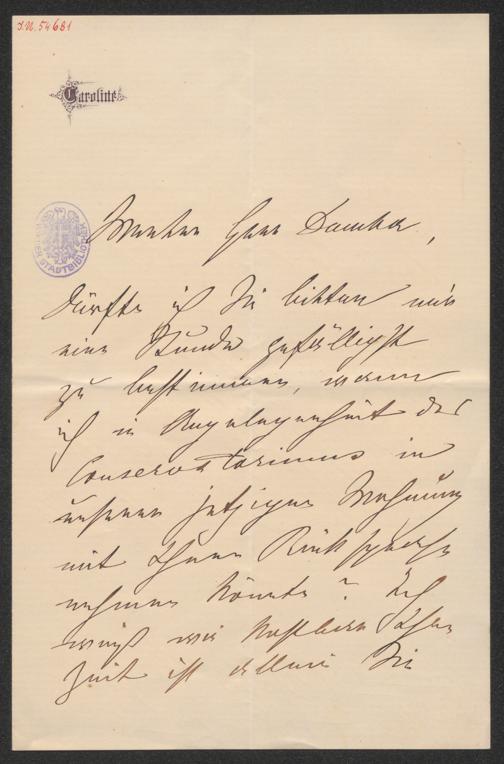 J.N. 54681
Caroline
WIENER STADTBIBLIOTHEK
Werther Herr Dumba,
dürfte ich Sie bitten mir
eine Stunde gefälligst
zu bestimmen, wann
ich in Angelegenheit des
Conservatoriums in
unserer jetzigen Wohnung
mit Ihnen Rücksprache
nehmen könnte? Ich
weiß wie kostbar Ihre
Zeit ist allein Sie